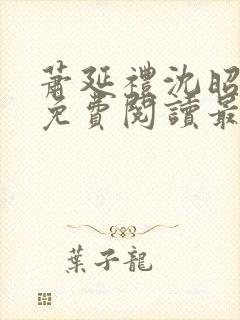 蕭延禮沈昭
免費閱讀最
葉子龍